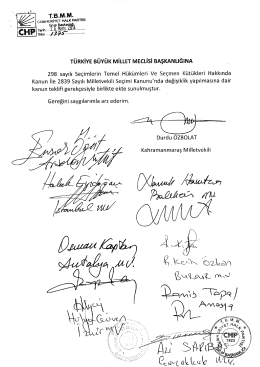 T.B.M.M.
CUMHURİYET HALK PARTİSİ
CHP
Tarih
Sayı 1375
TÜRKİYE BÜYÜK MİLLET MECLİSİ BAŞKANLIĞINA
298 sayılı Seçimlerin Temel Hükümleri Ve Seçmen Kütükleri Hakkında
Kanun İle 2839 Sayılı Milletvekili Seçimi Kanunu'nda değişiklik yapılmasına dair
kanun teklifi gerekçesiyle birlikte ekte sunulmuştur.
Gereğini saygılarımla arz ederim.
Durdu ÖZBOLAT
Kahramanmaraş Milletvekili
Haluk Eyidoğan
İstanbul mv
Namık Havutça
Balıkesir mv
Osman Kaptan
Antalya mv.
Burdur mv
Ramis Topal
Amasya
Hülya Güven
İzmir mv
Ali SARIBAŞ
Çanakkale M.V.
T.B.M.M.